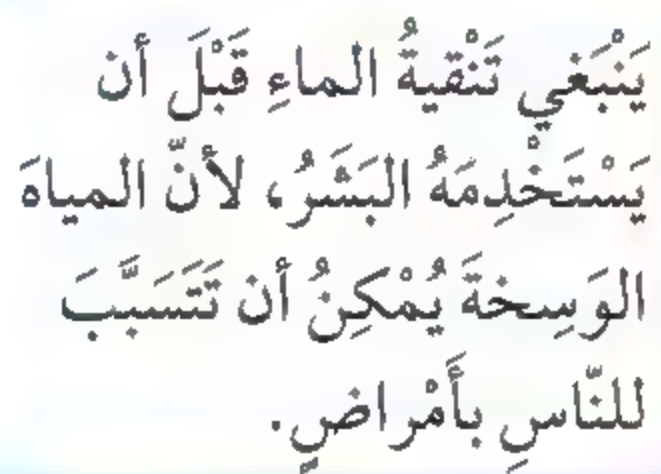 يَنْبَغي تَنْقيةُ الماءِ قَبْلَ أن
يَسْتَخْدِمَهُ البَشَرُ، لأنّ المياهَ
الوَسِخةَ يُمْكِنُ أن تَتَسَبَّبَ
للنّاسِ بأَمْراضٍ.